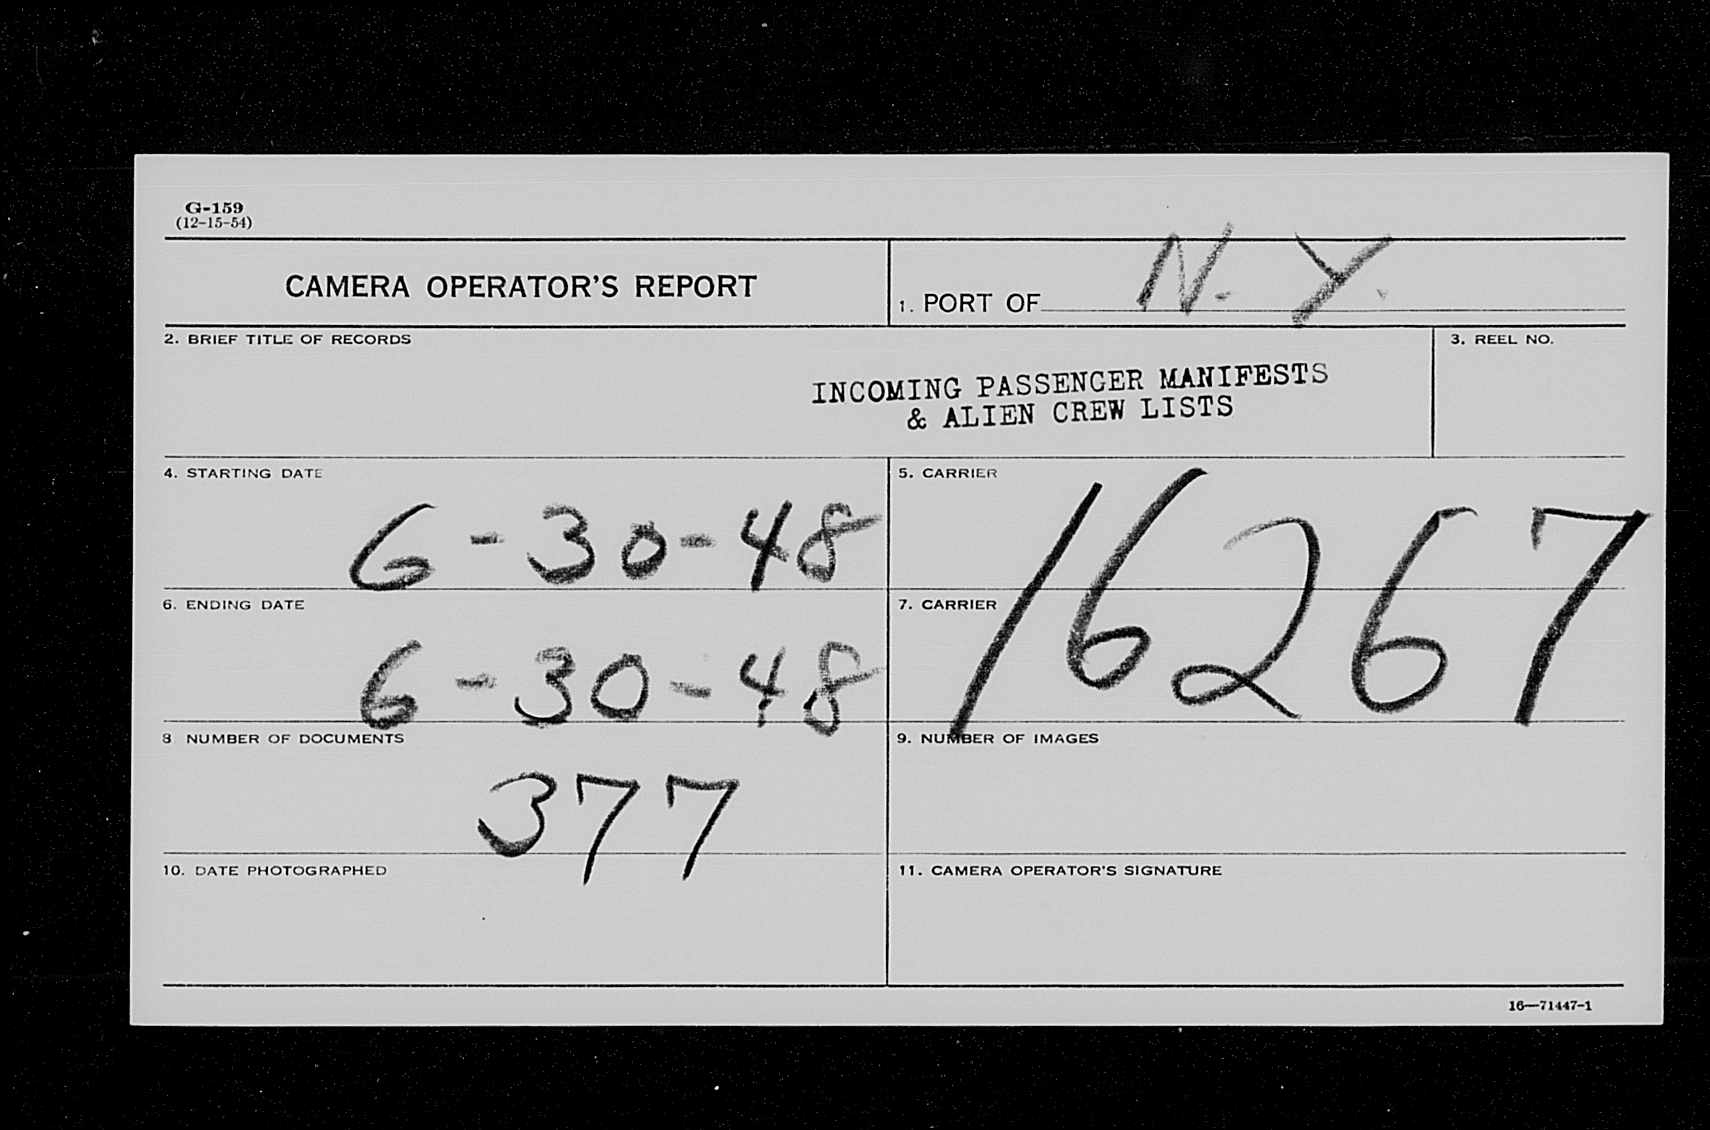 G-159
(12-15-54)
CAMERA OPERATOR'S REPORT
1. PORT OF N. Y.
2. BRIEF TITLE OF RECORDS
INCOMING PASSENGER MANIFESTS
& ALIEN CREW LISTS
3. REEL NO.
4. STARTING DATE
6-30-48
5. CARRIER
16267
6. ENDING DATE
6-30-48
7. CARRIER
8 NUMBER OF DOCUMENTS
377
9. NUMBER OF IMAGES
10. DATE PHOTOGRAPHED
11. CAMERA OPERATOR'S SIGNATURE
16—71447-1